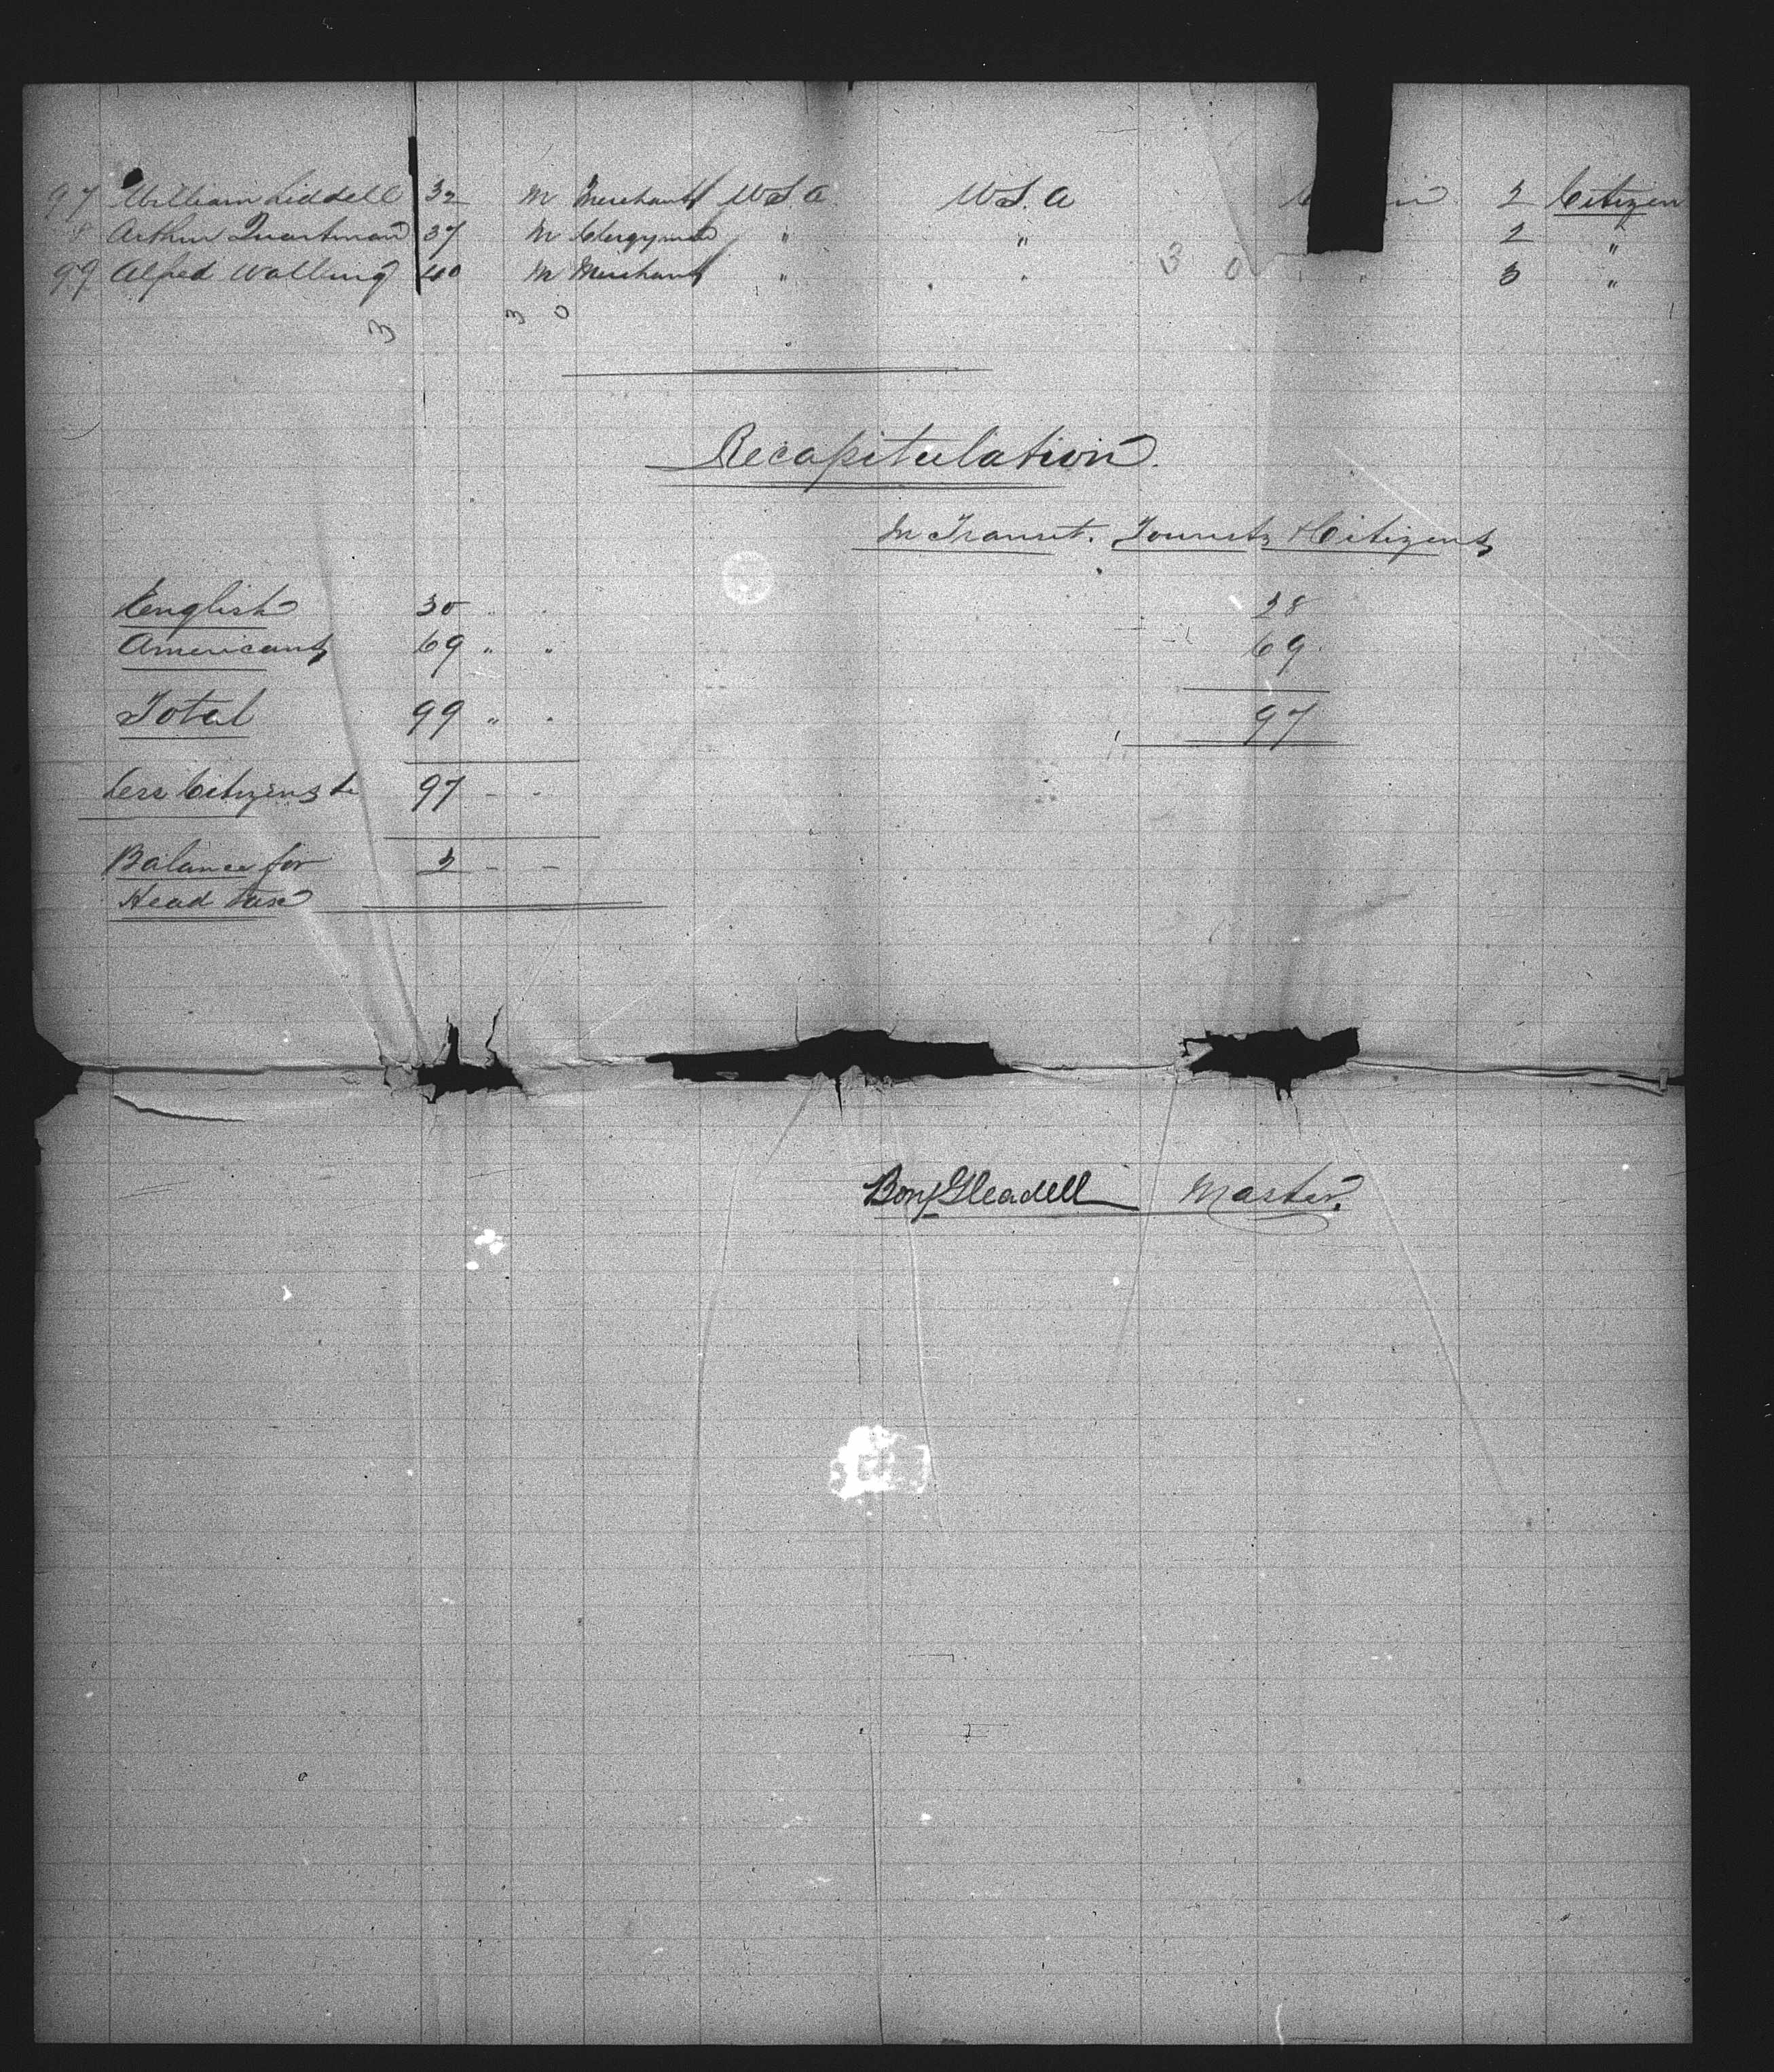 97 William Liddell 32 m Merchant U S. A. U S. A 2 Citizen
8 Arthur Quartman 37 m Clergyman " " 2 "
99 Alfred Walling 40 m Merchant " " 3 0 3 "
3 3 0
Recapitulation.
In Transit. Tourists & Citizens
English 30 " " 28
Americans 69 " " 69
Total 99 " " 97
Less Citizens &c 97 - -
Balance for 2 - -
Head tax
Benj Gleadell Master.